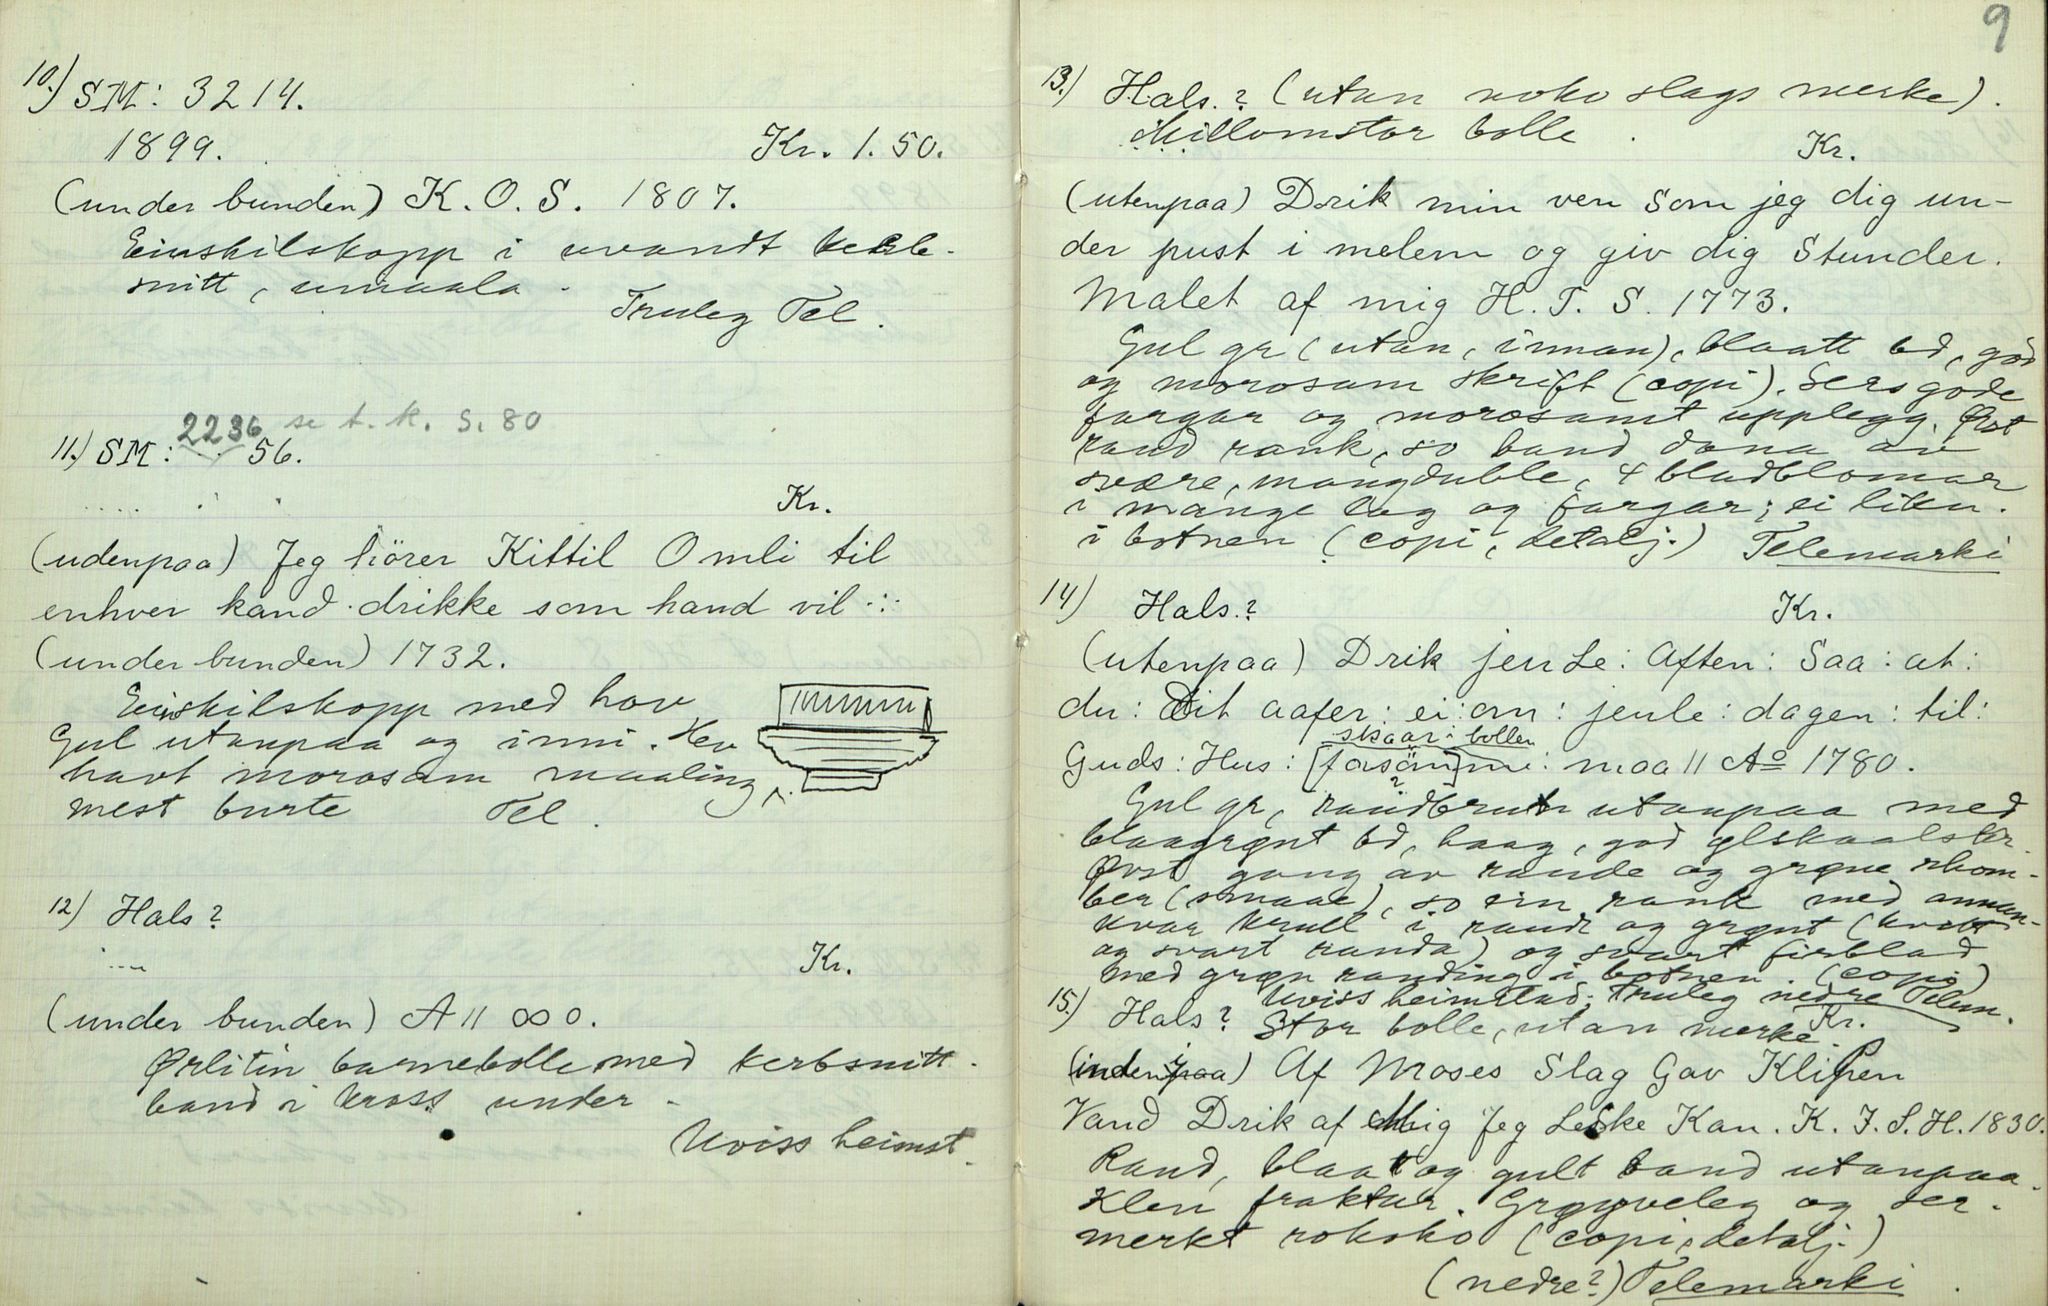 10.) SM: 3214.
1899. Kr. 1.50.
(under bunden) K. O. S. 1807.
Einskilskopp i uvandt
snitt, umaala.
Truleg Tel.
2236 se t. k. S. 80
11.) SM: 56.
Kr.
(udenpaa) Jeg hörer Kittil Omli til
enhver kand drikke som hand vil
(under bunden) 1732.
Einskilskopp med hov
Gul utanpaa og inni. Hev
havt morosam maaling,
mest burte Tel.
12) Hals?
Kr.
(under bunden) A 11 ∞ 0.
Ørlitin barnebolle med kerbsnitt-
band i kross under.
Uviss heimst.
9
13.) Hals.? (utan noko slags merke).
Millomstor bolle.
Kr.
(utenpaa) Drik min ven Som jeg dig un-
der pust i melem og giv dig Stunder.
Malet af mig H. T. S. 1773.
Gul gr (utan, innan), blaatt bd, god
og morosam skrift (copi). Sers gode
fargar og morosamt upplegg. Øvst
raud rank, so band dana av
svære, mangduble, 4 bladblomar
i mange lag og fargar; ei liten
i botnen (copi, detalj.) Telemarki
14) Hals.? Kr.
(utenpaa) Drik jenLe: Aften: Saa: at:
du: Dit aafer: ei: om: jenle: dagen: til:
skaar i bollen
Guds: Hus: [forsöm]me: maa 11 Aº 1780.
Gul gr, raudbrun utanpaa med
blaagrønt bd, haag, god ølskaalstor.
Øvst gang av raude og grøne rhom-
ber (smaae), so ein rank med annan-
kvar krull i raudt og grønt (kvitt
og svart randa) og svart firblad
med grøn randing i botnen. (copi)
Uviss heimstad; truleg nedre Telem.
15.) Hals? Stor bolle, utan merke. Kr.
(inden i) Af Moses Slag Gav Klippen
Vand Drik af Mig Jeg Leske Kan. K. J. S. H. 1830.
Raud, blaat og gult band utanpaa.
Klen fraktur. Grøpveleg og ser-
merkt rokoko (copi, detalj.)
(nedre?) Telemarki.